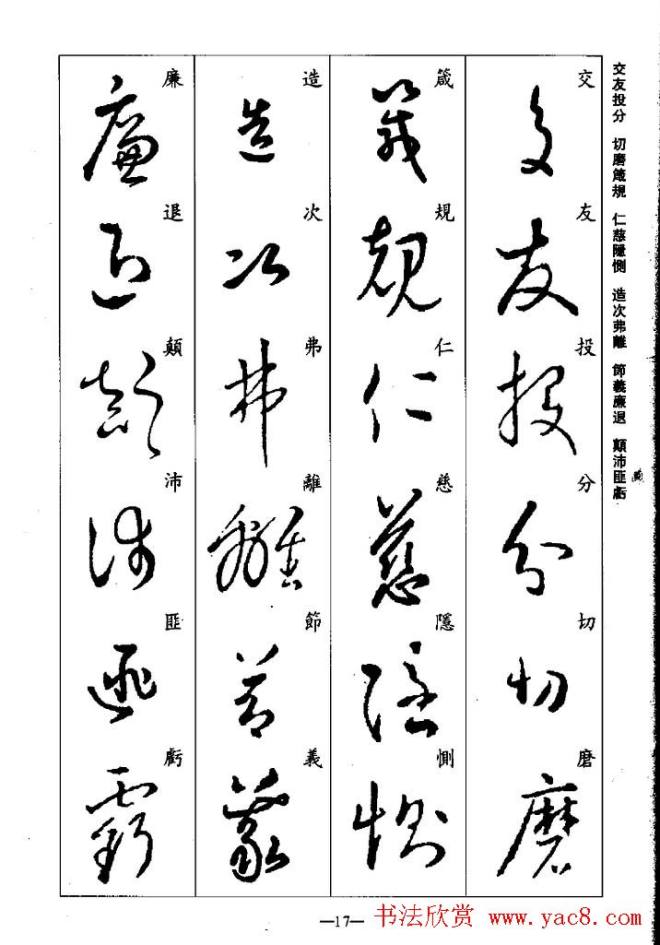 交友投分 切磨箴規 仁慈隱惻 造次弗離 節義廉退 顛沛匪虧
交友投分切磨
箴規仁慈隱惻
造次弗離節義
廉退顛沛匪虧
—17—
书法欣赏 www.yac8.com